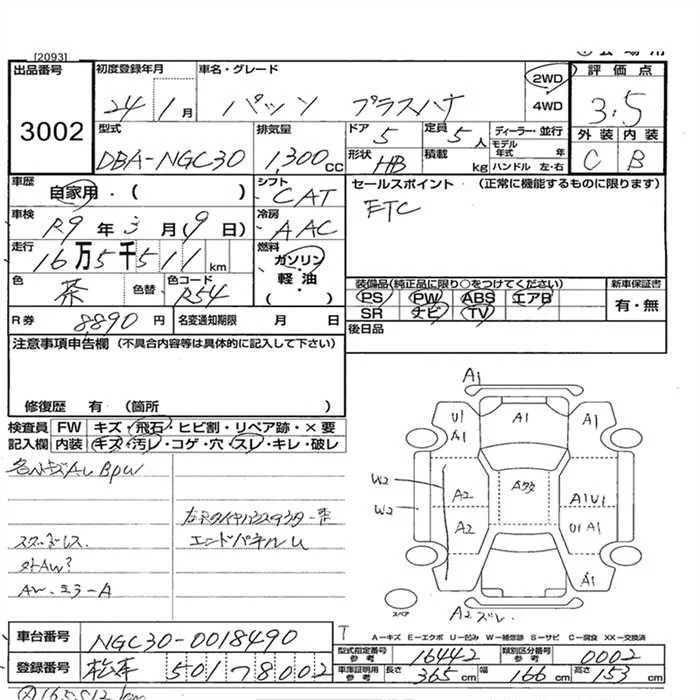 [2093]
出品番号
3002
初度登録年月
24 1月
車名・グレード
パッソ プラスハナ
2WD
4WD
評価点
3.5
外装 内装
C B
型式
DBA-NGC30
排気量
1,300 CC
ドア 5
定員 5 人
形状 HB
積載 kg
ディーラー・並行
モデル年式 年
ハンドル 左・右
車歴
自家用・( )
シフト
CAT
セールスポイント (正常に機能するものに限ります)
ETC
車検
R9年3月(9日)
冷房
AAC
走行
16万5千511km
燃料
ガソリン
軽・油
( )
色
茶
色替
色コード
R54
装備品(純正品に限り○をつけてください)
PS PW ABS エアB
SR ナビ TV
新車保証書
有・無
R券 8,890円
名変通知期限 月 日
後日品
注意事項申告欄 (不具合内容等は具体的に記入して下さい)
修復歴 有 (箇所 )
検査員記入欄
FW キズ・飛石・ヒビ割・リペア跡・×要
内装 キズ・汚レ・コゲ・穴・スレ・キレ・破レ
エンドパネルU
外AW?
AW、ミラーA
A1
U1
A1
A1
A1
W2
W2
A2
A2
A1U1
U1A1
A1
スペア
A2ズレ
A-キズ E-エクボ U-凹み W-補修跡 S-サビ C-腐食 XX-交換済
車台番号
NGC30-0018490
登録番号
松本 501 ワ 8002
型式指定番号 参考
16442
類別区分番号 参考
0002
車庫証明用 参考
長さ 365 cm 幅 166 cm 高さ 153 cm